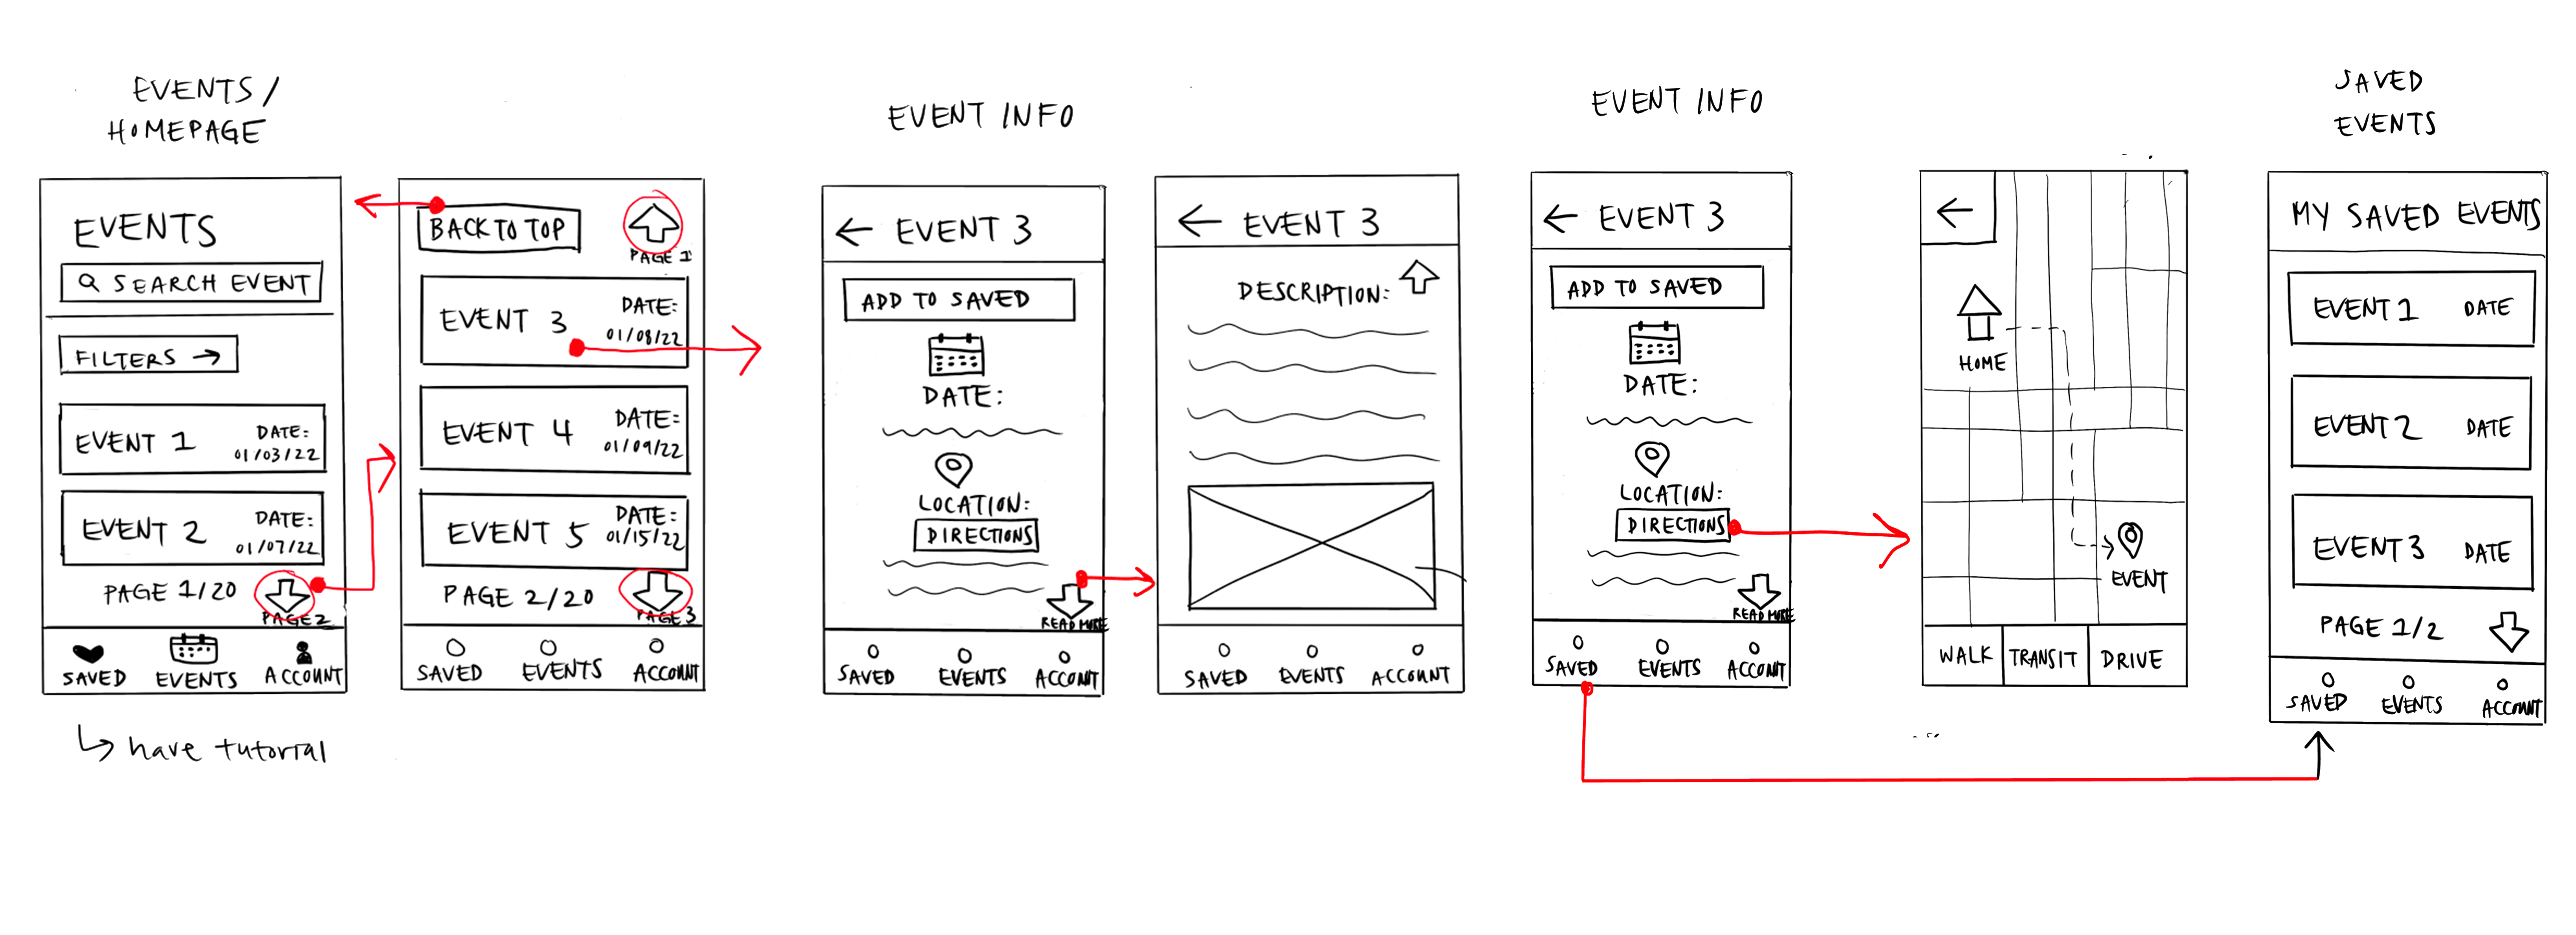 EVENTS /
HOMEPAGE
EVENTS
SEARCH EVENT
FILTERS →
EVENT 1
DATE:
01/03/22
EVENT 2
DATE:
01/07/22
PAGE 1/20
PAGE 2
SAVED
EVENTS
ACCOUNT
have tutorial
BACK TO TOP
PAGE 1
EVENT 3
DATE:
01/08/22
EVENT 4
DATE:
01/09/22
EVENT 5
DATE:
01/15/22
PAGE 2/20
PAGE 3
SAVED
EVENTS
ACCOUNT
EVENT INFO
← EVENT 3
ADD TO SAVED
DATE:
LOCATION:
DIRECTIONS
READ MORE
SAVED
EVENTS
ACCOUNT
← EVENT 3
DESCRIPTION:
SAVED
EVENTS
ACCOUNT
EVENT INFO
← EVENT 3
ADD TO SAVED
DATE:
LOCATION:
DIRECTIONS
READ MORE
SAVED
EVENTS
ACCOUNT
HOME
EVENT
WALK
TRANSIT
DRIVE
SAVED
EVENTS
MY SAVED EVENTS
EVENT 1 DATE
EVENT 2 DATE
EVENT 3 DATE
PAGE 1/2
SAVED
EVENTS
ACCOUNT